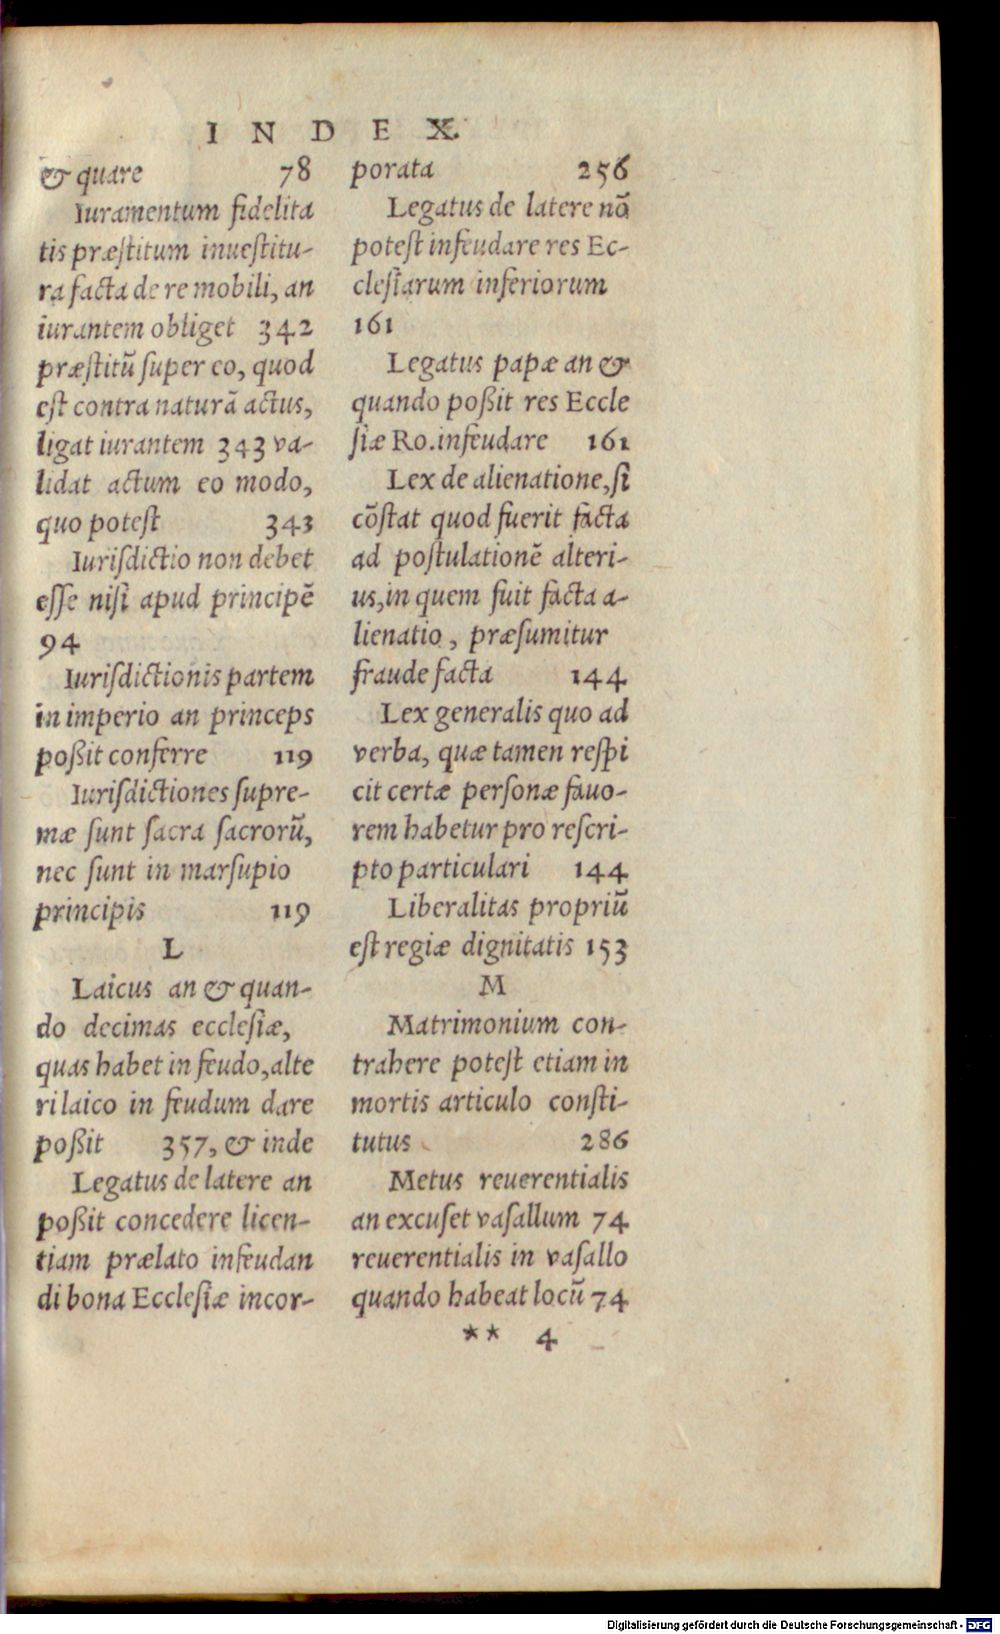 INDEX.
& quare 78
Iuramentum fidelita
tis præſtitum inueſtitu-
ra facta de re mobili, an
iurantem obliget 342
præſtitū ſuper eo, quod
eſt contra naturā actus,
ligat iurantem 343 va-
lidat actum eo modo,
quo poteſt 343
Iuriſdictio non debet
eſſe niſi apud principē
94
Iuriſdictionis partem
in imperio an princeps
poßit conferre 119
Iuriſdictiones ſupre-
mæ ſunt ſacra ſacrorū,
nec ſunt in marſupio
principis 119
L
Laicus an & quan-
do decimas eccleſiæ,
quas habet in feudo, alte
ri laico in feudum dare
poßit 357, & inde
Legatus de latere an
poßit concedere licen-
tiam prælato infeudan
di bona Eccleſiæ incor-
porata 256
Legatus de latere nō
poteſt infeudare res Ec-
cleſiarum inferiorum
161
Legatus papæ an &
quando poßit res Eccle
ſiæ Ro. infeudare 161
Lex de alienatione, ſi
cōſtat quod fuerit facta
ad poſtulationē alteri-
us, in quem fuit facta a-
lienatio, præſumitur
fraude facta 144
Lex generalis quo ad
verba, quæ tamen reſpi
cit certæ perſonæ fauo-
rem habetur pro reſcri-
pto particulari 144
Liberalitas propriū
eſt regiæ dignitatis 153
M
Matrimonium con-
trahere poteſt etiam in
mortis articulo conſti-
tutus 286
Metus reuerentialis
an excuſet vaſallum 74
reuerentialis in vaſallo
quando habeat locū 74
** 4
Digitalisierung gefördert durch die Deutsche Forschungsgemeinschaft - DFG